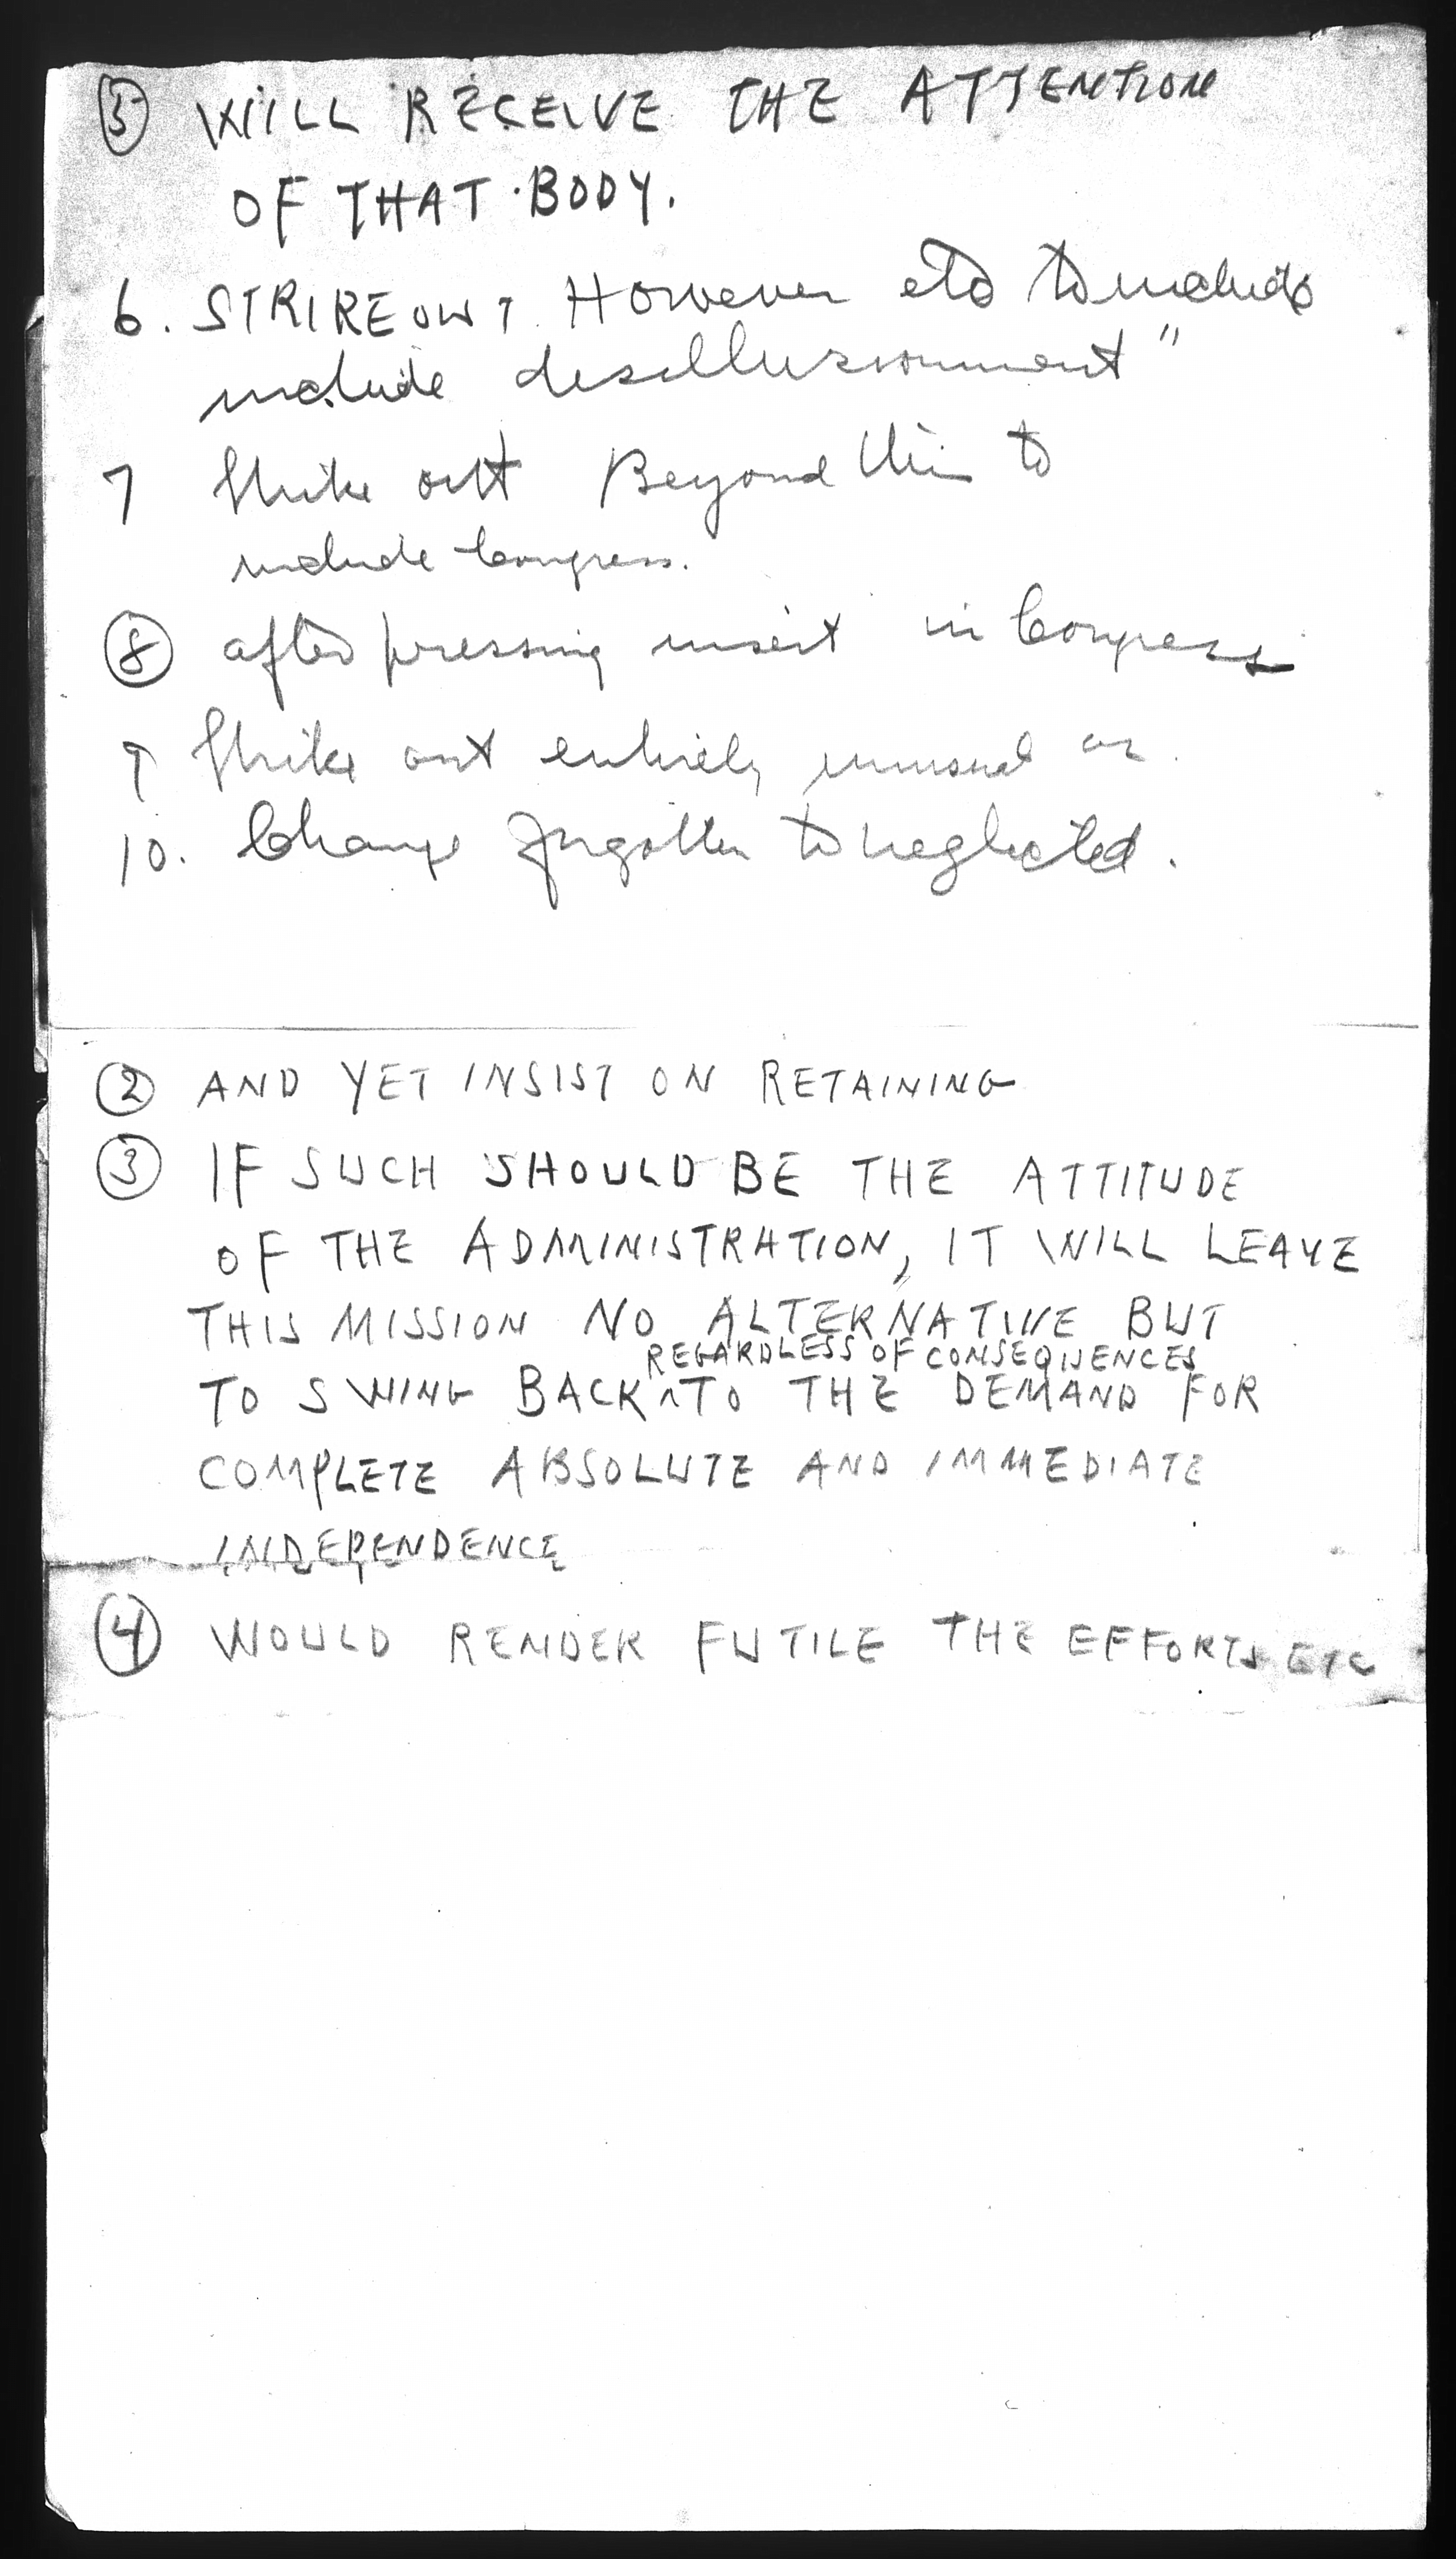 ⑤ WILL RECEIVE THE ATTENTION
OF THAT BODY.
6. STRIKE OUT However etc to include
include desillusionment"
7 Strike out Beyond this to
include Congress.
⑧ after pressing insert in Congress
9 Strike out entirely unusual or
10. Change forgotten to neglected.
② AND YET INSIST ON RETAINING
③ IF SUCH SHOULD BE THE ATTITUDE
OF THE ADMINISTRATION, IT WILL LEAVE
THIS MISSION NO ALTERNATIVE BUT
REGARDLESS OF CONSEQUENCES
TO SWING BACK ^ TO THE DEMAND FOR
COMPLETE ABSOLUTE AND IMMEDIATE
INDEPENDENCE
④ WOULD RENDER FUTILE THE EFFORTS ETC